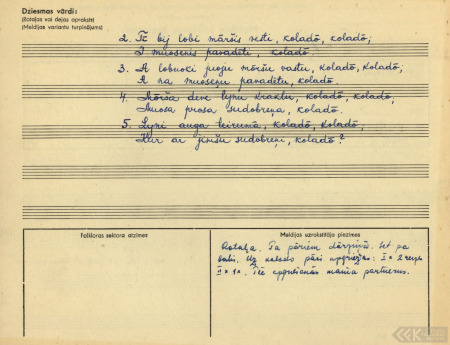 Dziesmas vārdi:
(Rotaļas vai dejas apraksts)
(Meldijas variantu turpinājums)
2. bij lobi māršis vesti, koladō, koladō;
I muosenis pavadēti, koladō.
3. A lobuoki jiugu mōršu vastu, koladō, koladō;
A na muoseņu pavadētu, koladō.
4. Mōrša deve lynu kraklu, koladō, koladō,
Muosa prosa sudobreņa, koladō.
5. Lyni auga teirumā, koladō, koladō,
Kur ar jimšu sudobreņi, koladō?
Folkloras sektora atzīmes
Meldijas uzrakstītāja piezīmes
Rotaļa. Ta pōriem dōrziņūs. Iet pa
kolado pāri apgriežas: I× 2 reizes
II× 1×. apgriešanās maina partnerus.